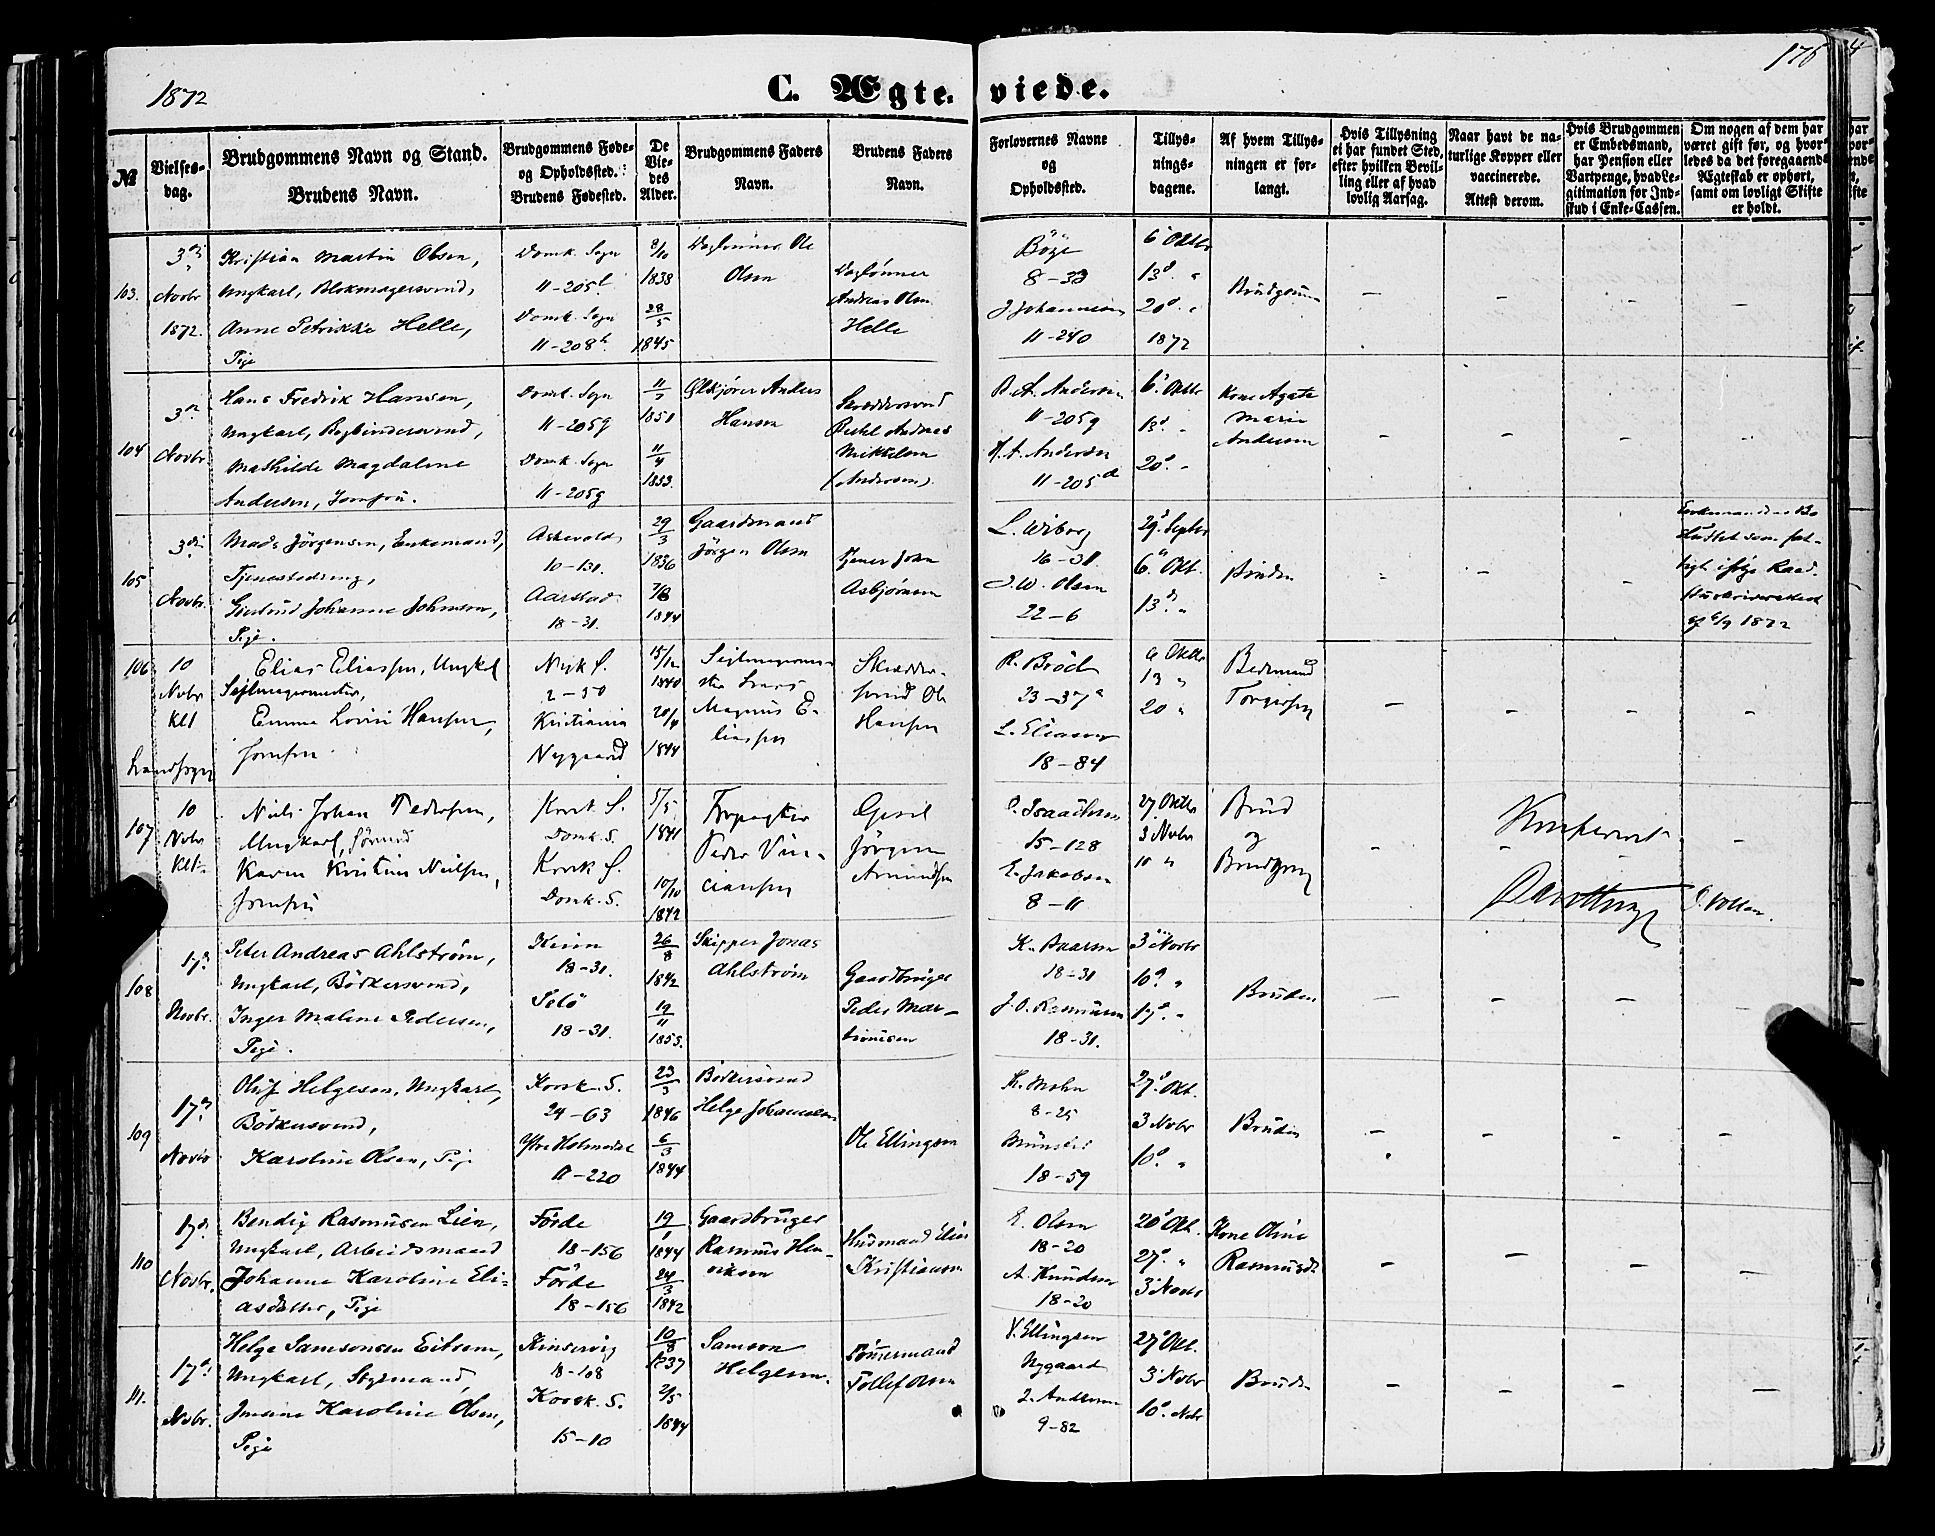 1872
C. Ægte-
viede.
176
№
Vielses-
dag.
Brudgommens Navn og Stand.
Brudens Navn.
Brudgommens Føde-
og Opholdssted.
Brudens Fødested.
De
Vie-
des
Alder.
Brudgommens Faders
Navn.
Brudens Faders
Navn.
Forlovernes Navne
og
Opholdssted.
Tillys-
nings-
dagene.
Af hvem Tillys-
ningen er for-
langt.
Hvis Tillysning
ei har fundet Sted,
efter hvilken Bevil-
ling eller af hvad
lovlig Aarsag.
Naar havt de na-
turlige Kopper eller
vaccinerede.
Attest derom.
Hvis Brudgommen
er Embedsmand,
har Pension eller
Vartpenge, hvad Le-
gitimation for Ind-
skud i Enke-Cassen.
Om nogen af dem har
været gift før, og hvor-
ledes da det foregaaende
Ægteskab er ophørt,
samt om lovligt Skifte
er holdt.
103.
3die
Novbr
1872.
Kristian Martin Olsen,
Ungkarl, Blokmagersvend,
Anne Petrikke Helle,
Pige
Domk. Sogn
11-205
Domk. Sogn
11-208
8/10
1838
28/5
1845
Daglønner Ole
Olsen
Daglønner
Andreas Olsen
Helle
Böge
8-33
J Johannesen
11-240
6 Oktbr
13d "
20d "
1872
Brudgommen
104
3
Novbr
Hans Fredrik Hansen,
Ungkarl, Bogbindersvend,
Mathilde Magdalene
Andersen, Jomfru.
Domk. Sogn
11-205g
Domk. Sogn
11-205g
1850
11/4
1853.
Anders
Hansen
Skræddersvend
Andreas
Mikkelsen
(Andersen).
A. Andersen
11-205g
A. A. Andersen
11-205d
6 Oktbr
13d "
20d "
Kone Agate
Marie
Andersen
105
3die
Novbr.
Mads Jörgensen, Enkemand,
Tjenestedreng,
Gjertrud Johanne Johnsen,
Pige.
Askevold
10-131.
Aarstad
18-31.
29/3
1836
7/8
1844
Gaardmand
Jörgen Olsen
John
Asbjörnsen
L. Wiborg
16-31.
J. W. Olsen
22-6
29 Septbr
6 Okt.
13 "
Bruden
Enkemandens Bo
sluttet som fat-
tigt ifølge
af 6/9 1872
106
10
Novbr
Klt
Landsogn
Elias Eliassen, Ungkarl
Sejlmagermester,
Emma Lovise Hansen,
Jomfru
Nyk. S.
2-50
Kristiania
Nygaard
15/12
1840
20/4
1844
Sejlmagerme-
ster Lars
Magnus E-
liassen
Skrædder-
svend Ole
Hansen
R. Bröch
23-37a
L. Eliassen
18-84
6 Oktbr
13 "
20 "
Bedemand
Torgersen
107
10
Novbr
Klt.
Niels Johan Pedersen,
Ungkarl, Sömand
Karen Kristine Nielsen,
Jomfru
Korsk. S.
Domk. S.
Korsk. S.
Domk. S.
5/5
1841
10/10
1842
Peder Vin-
ciansen
Jörgen
Amundsen
Isaachsen
15-128
E. Jakobsen
8-11
27 Oktbr
3 Novbr
10 "
Brud
og
Brudgom
108
17d
Novbr.
Peter Andreas Ahlström,
Ungkarl, Bödkersvend,
Inger Malene Pedersen,
Pige.
Kinn
18-31.
Selö
18-31.
26/8
1842
19/11
1855.
Skipper Jonas
Ahlström
Gaardbruger
Peder Mar-
tinusen
K. Baarsen
18-31
J. O. Rasmusen
18-31.
3 Novbr
10d "
17d "
Bruden
109
17d
Novbr
Oluf Helgesen, Ungkarl,
Bödkersvend,
Karoline Olsen, Pige
Korsk. S.
24-63
Ytre Holmedal
17-220
23/3
1846
6/3
1844
Bödkersvend
Helge Johannesen
Ole Ellingsen
K. Mohn
8-25
18-59
27d Okt.
3 Novbr
10d "
Bruden
110
17d
Novbr.
Bendix Rasmusen Lien,
Ungkarl, Arbeidsmand
Johanne Karoline Eli-
asdatter, Pige
Förde
18-156
Förde
18-156
19/1
1844
24/3
1842
Gaardbruger
Rasmus Hen-
riksen
Husmand Elias
Kristiansen
E. Olsen
18-20
A. Knudsen
18-20
20 Okt.
27d "
3 Novbr
Kone Oline
Rasmusdr
111.
17d
Novbr.
Helge Samsonsen Eitrem,
Ungkarl, Styrmand,
Karoline Olsen,
Pige
Kinservig
18-108
Korsk. S.
15-10
10/8
1837
2/5
1844
Samson
Helgesen.
Tømmermand
Tollef Olsen
V. Ellingsen
Nygaard
Andersen
9-82
27d Okt.
3 Novbr
10d Nobr
Bruden